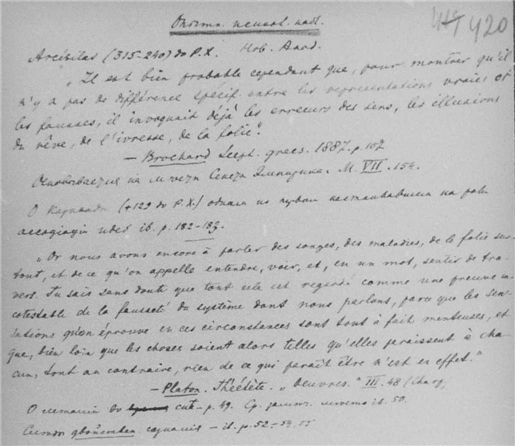 420
Arcésilas (315-240) до Р.Х.
„Il est bien probable cependant que, pour montrer qu'il
n'y a pas de différence spécif. entre les représentations vraies et
les fausses, il invoquait déjà les erreurs des sens, les illusions
du rêve, de l'ivresse, de la folie".
— Brochard Scept. grecs. 1887. p. 107
M. VII. 154.
(+129 до Р.Х.) один из
ассоциации идей ib. p. 182-183.
„Or nous avons encore à parler des songes, des maladies, de la folie sur
tout, et de ce qu'on appelle entendre, voir, et, en un mot, sentir de tra-
vers. Tu sais sans doute que tout cela est regardé comme une preuve in
contestable de la fausseté du système dont nous parlons, parce que les sen-
sations qu'on éprouve en ces circonstances sont tout à fait menteuses, et
que, bien loin que les choses soient alors telles qu'elles paraissent à cha-
cun, tout au contraire, rien de ce qui paraît être n'est en effet."
— Platon. Théétète. „Oeuvres." III. 48
О p. 49. Ср. ib. 50.
— ib. p. 52-